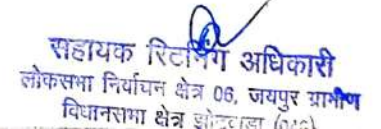 सहायक रिटर्निंग अधिकारी
लोकसभा निर्वाचन क्षेत्र 06, जयपुर ग्रामीण
विधानसभा क्षेत्र झोटवाड़ा (046)